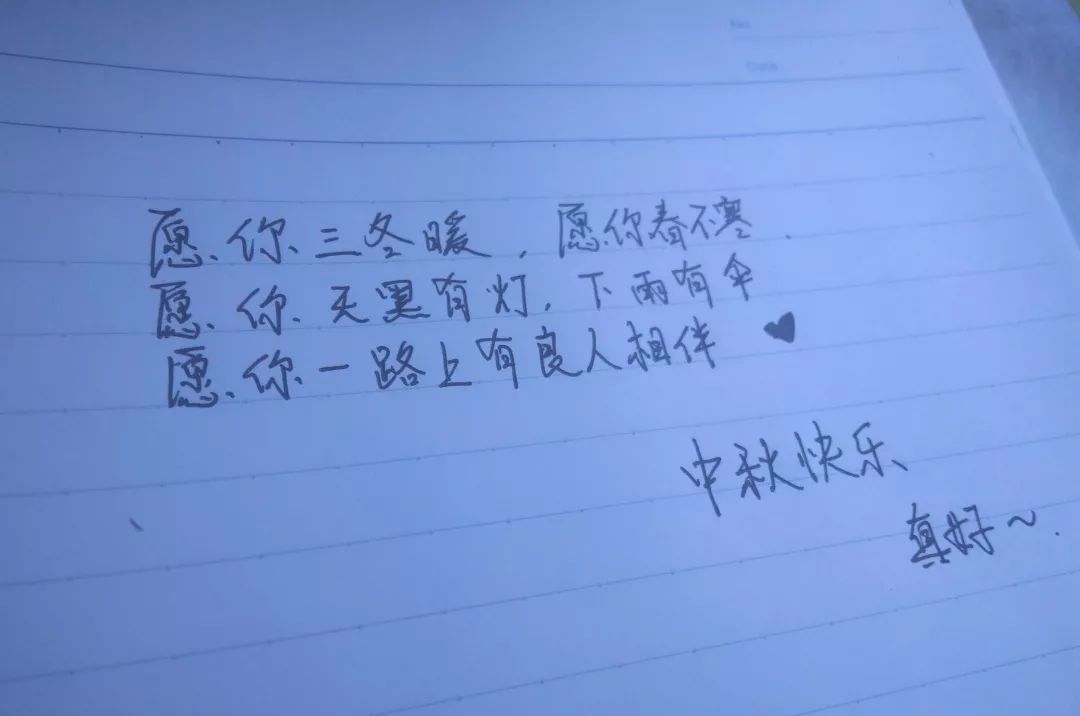 愿你三冬暖,愿你春不寒.
愿你天黑有灯,下雨有伞
愿你一路上有良人相伴 ♥
中秋快乐
真好~.